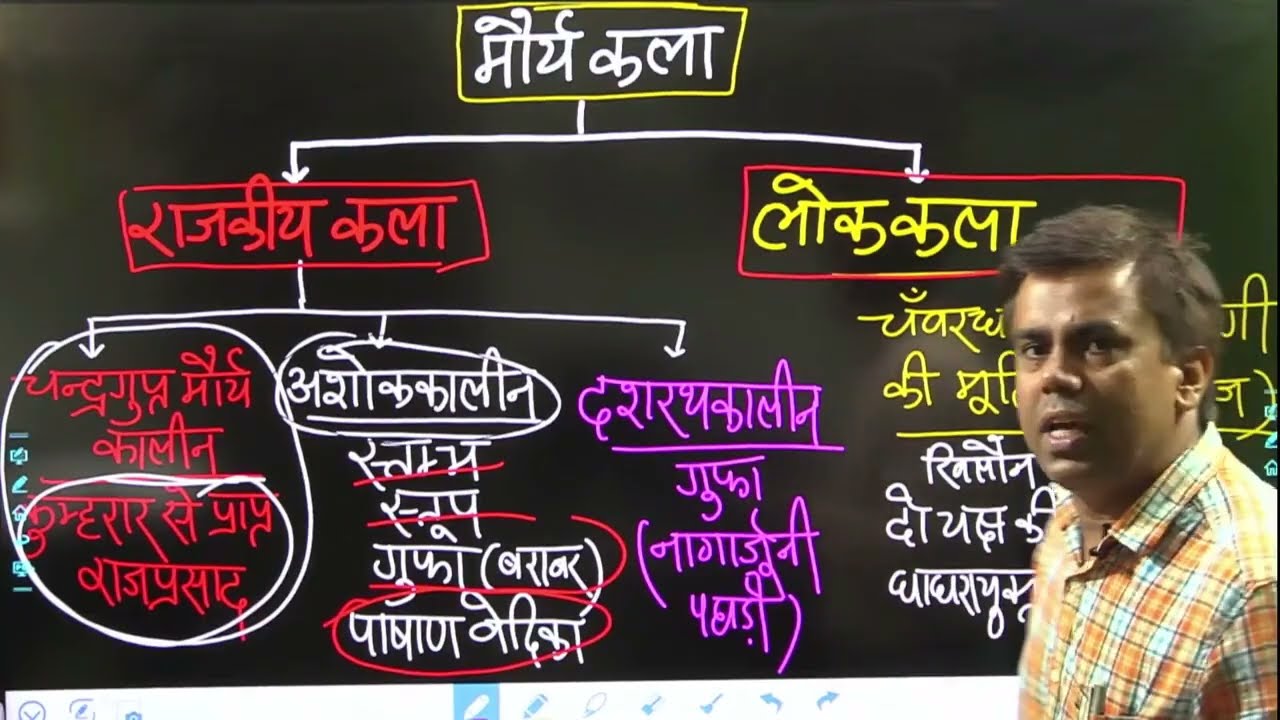 मौर्य कला
राजकीय कला
लोककला
चन्द्रगुप्त मौर्य
कालीन
कुम्हरार से प्राप्त
राजप्रसाद
अशोककालीन
स्तम्भ
स्तूप
गुफा (बराबर)
पाषाण वेदिका
दशरथकालीन
गुफा
(नागार्जुनी
पहाड़ी)
की
दो यक्ष की